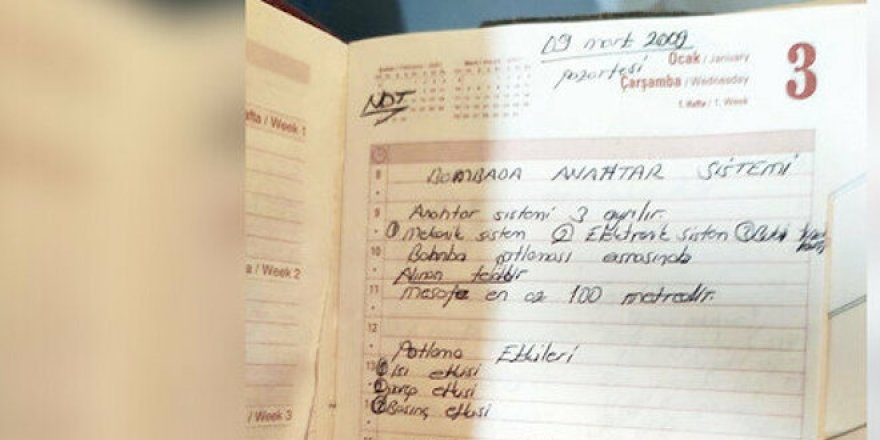 09 mart 2009
pazartesi
Ocak / January
Çarşamba / Wednesday
1. Hafta / 1. Week
3
NOT
afta / Week 1
a / Week 2
/ Week 3
8 BOMBADA ANAHTAR SİSTEMİ
9 Anahtar sistemi 3 ayrılır.
① Mekanik sistem ② Elektronik sistem ③
10 Bomba patlaması esnasında
Alınan tedbir
11 Mesafe en az 100 metredir.
12
Patlama Etkileri
13 ① Isı etkisi
② etkisi
③ Basınç etkisi